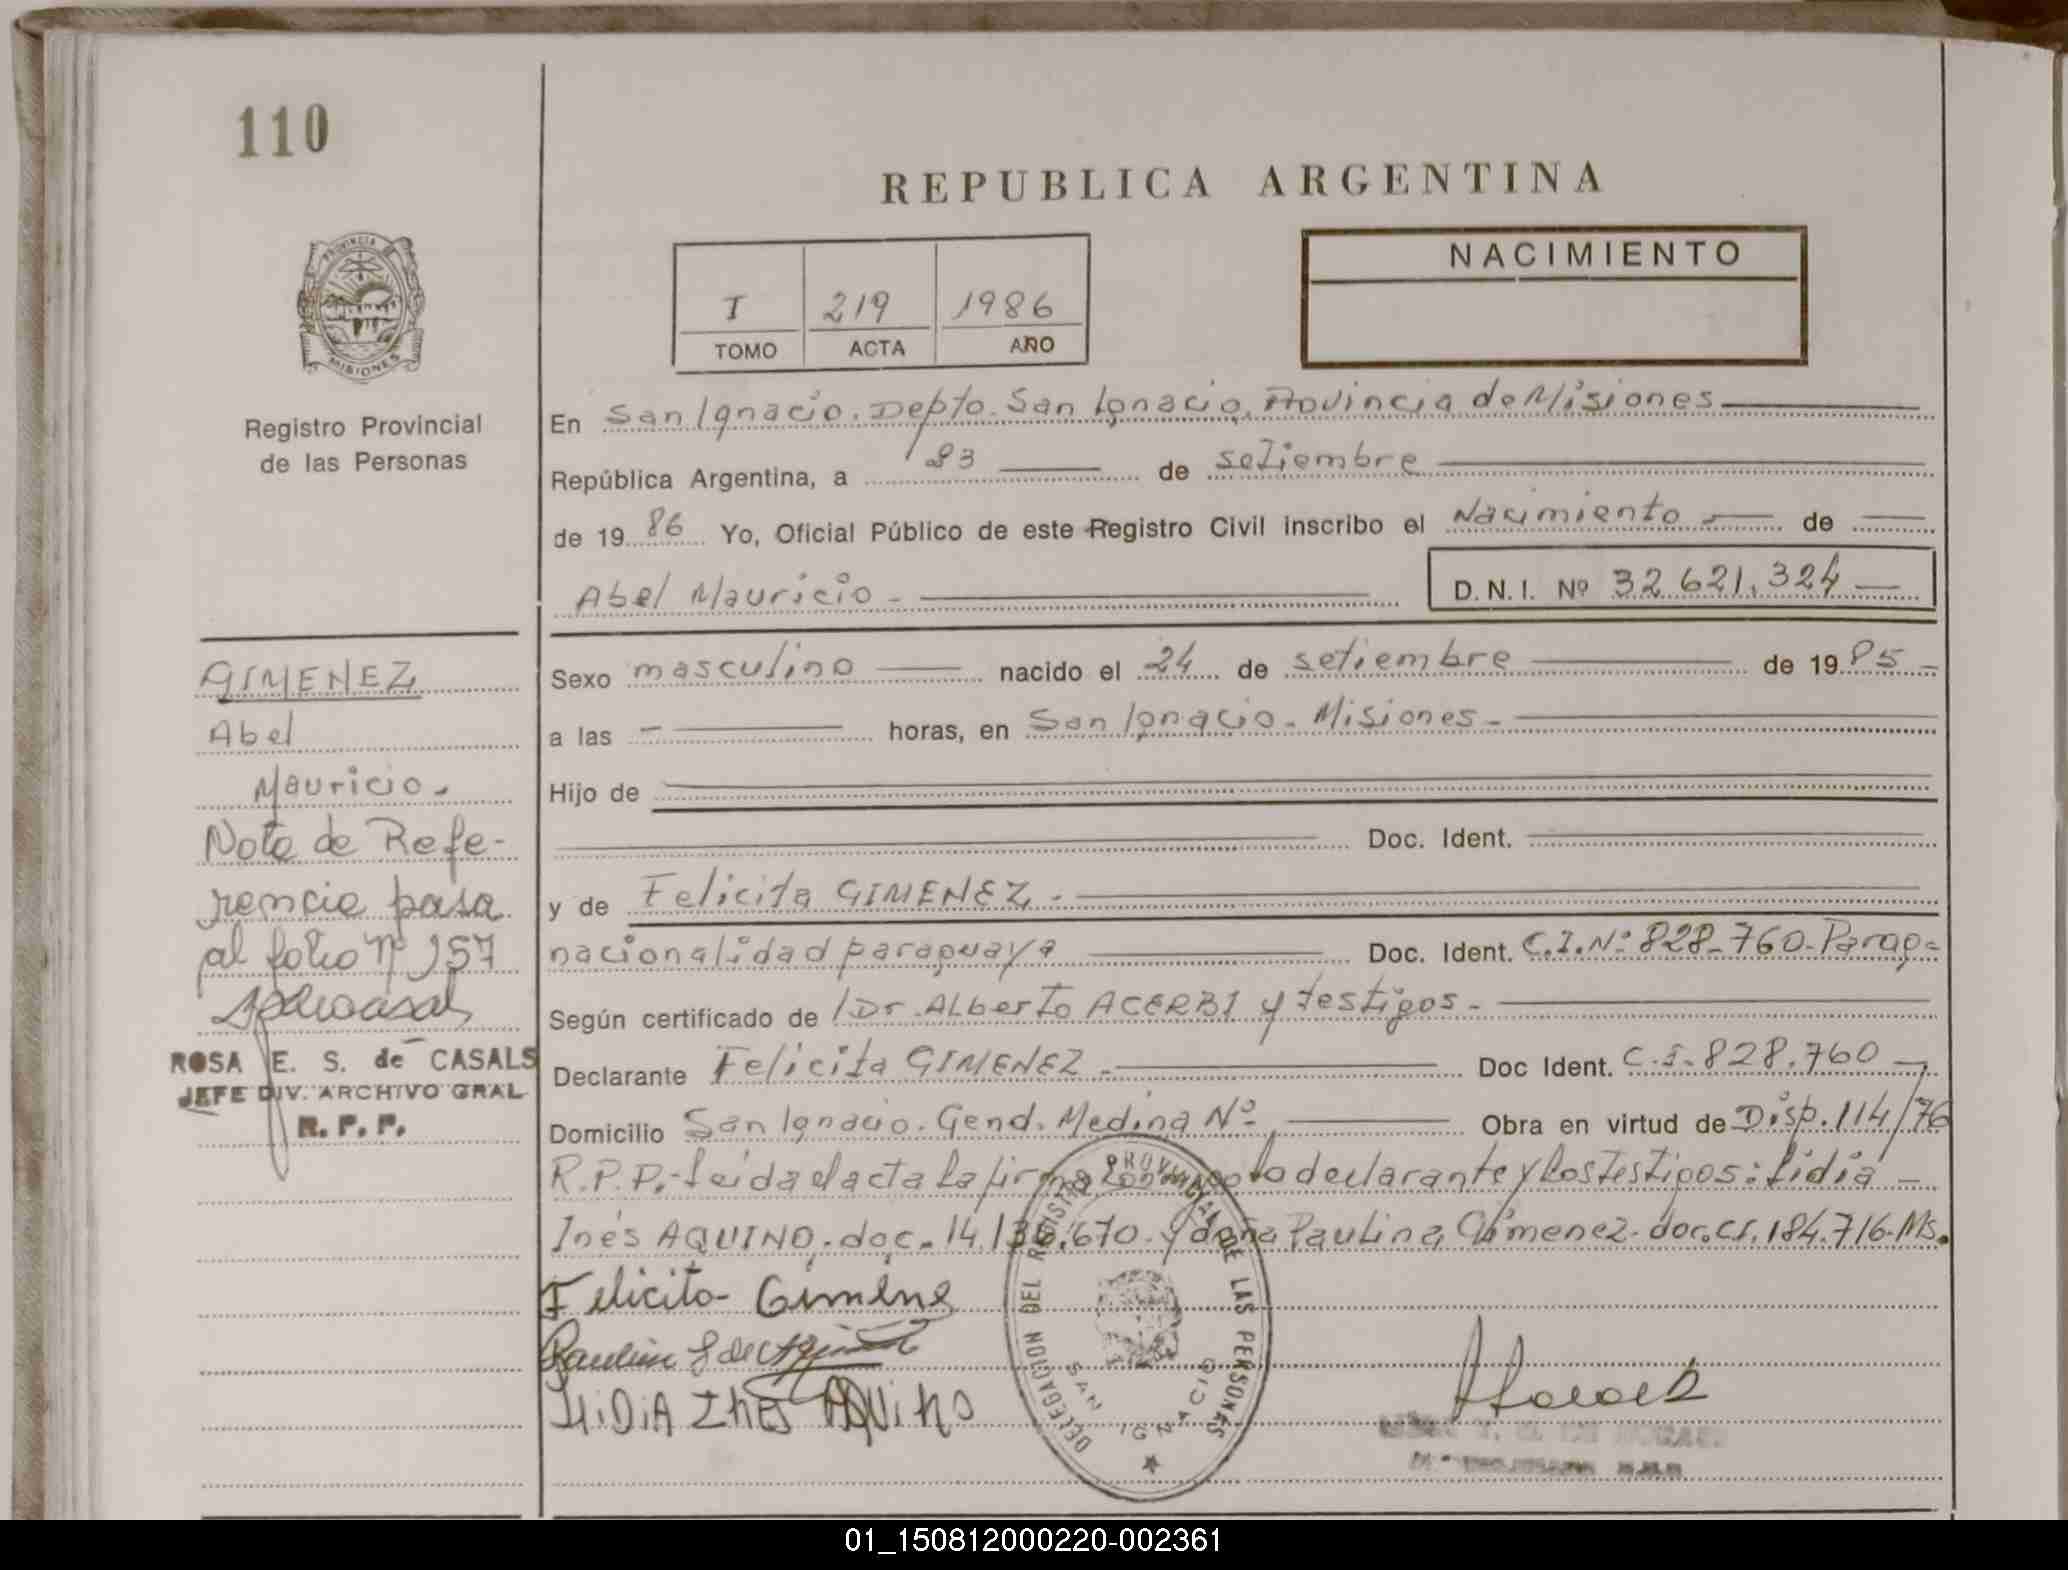 110
REPUBLICA ARGENTINA
PROVINCIA DE MISIONES
I 219 1986
TOMO ACTA AÑO
NACIMIENTO
Registro Provincial
de las Personas
En San Ignacio. Depto. San Ignacio. Provincia de Misiones
República Argentina, a 23 de setiembre
de 19 86 Yo, Oficial Público de este Registro Civil inscribo el Nacimiento de
Abel Mauricio - D.N.I. Nº 32.621.324
GIMENEZ
Abel
Mauricio.
Nota de Refe-
rencia pasa
al folio Nº 157
ROSA E. S. de CASALS
JEFE DIV. ARCHIVO GRAL
R. P. P.
Sexo masculino nacido el 24 de setiembre de 19 85
a las - horas, en San Ignacio - Misiones -
Hijo de
Doc. Ident.
y de Felicita GIMENEZ -
nacionalidad paraguaya Doc. Ident. C.I. Nº 828-760-Parag-
Según certificado de Dr. Alberto ACERBI y testigos -
Declarante Felicita GIMENEZ - Doc Ident. C.I. 828.760
Domicilio San Ignacio. Gend. Medina Nº Obra en virtud de Disp. 114/76
R.P.P.- Leída el acta la firma la declarante y los testigos: Lidia
Inés AQUINO. doc. 14.136.670. y doña Paulina Gimenez. doc. CI. 184.716. Ms.
Felicita Gimene
LiDiA Ines AQUiNO
DELEGACION DEL REGISTRO PROVINCIAL DE LAS PERSONAS
SAN IGNACIO
01_150812000220-002361